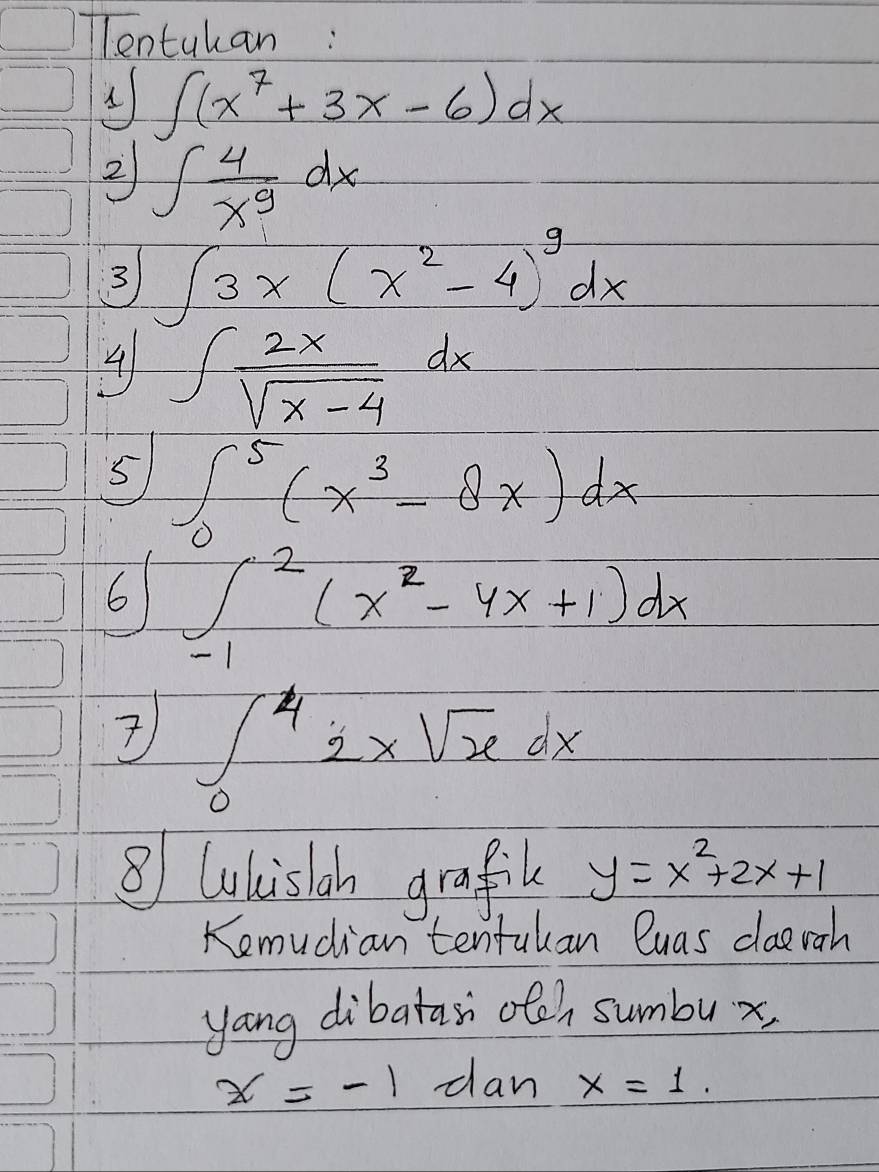 Tentukan :
1) ∫(x⁷ + 3x - 6) dx
2) ∫ 4/x⁹ dx
3) ∫ 3x (x² - 4)⁹ dx
4) ∫ 2x/√(x - 4) dx
5) ∫₀⁵ (x³ - 8x) dx
6) ∫₋₁² (x² - 4x + 1) dx
7) ∫₀⁴ 2x √x dx
8) Lukislah grafik y = x² + 2x + 1
Kemudian tentukan luas daerah
yang dibatasi oleh sumbu x,
x = -1 dan x = 1.